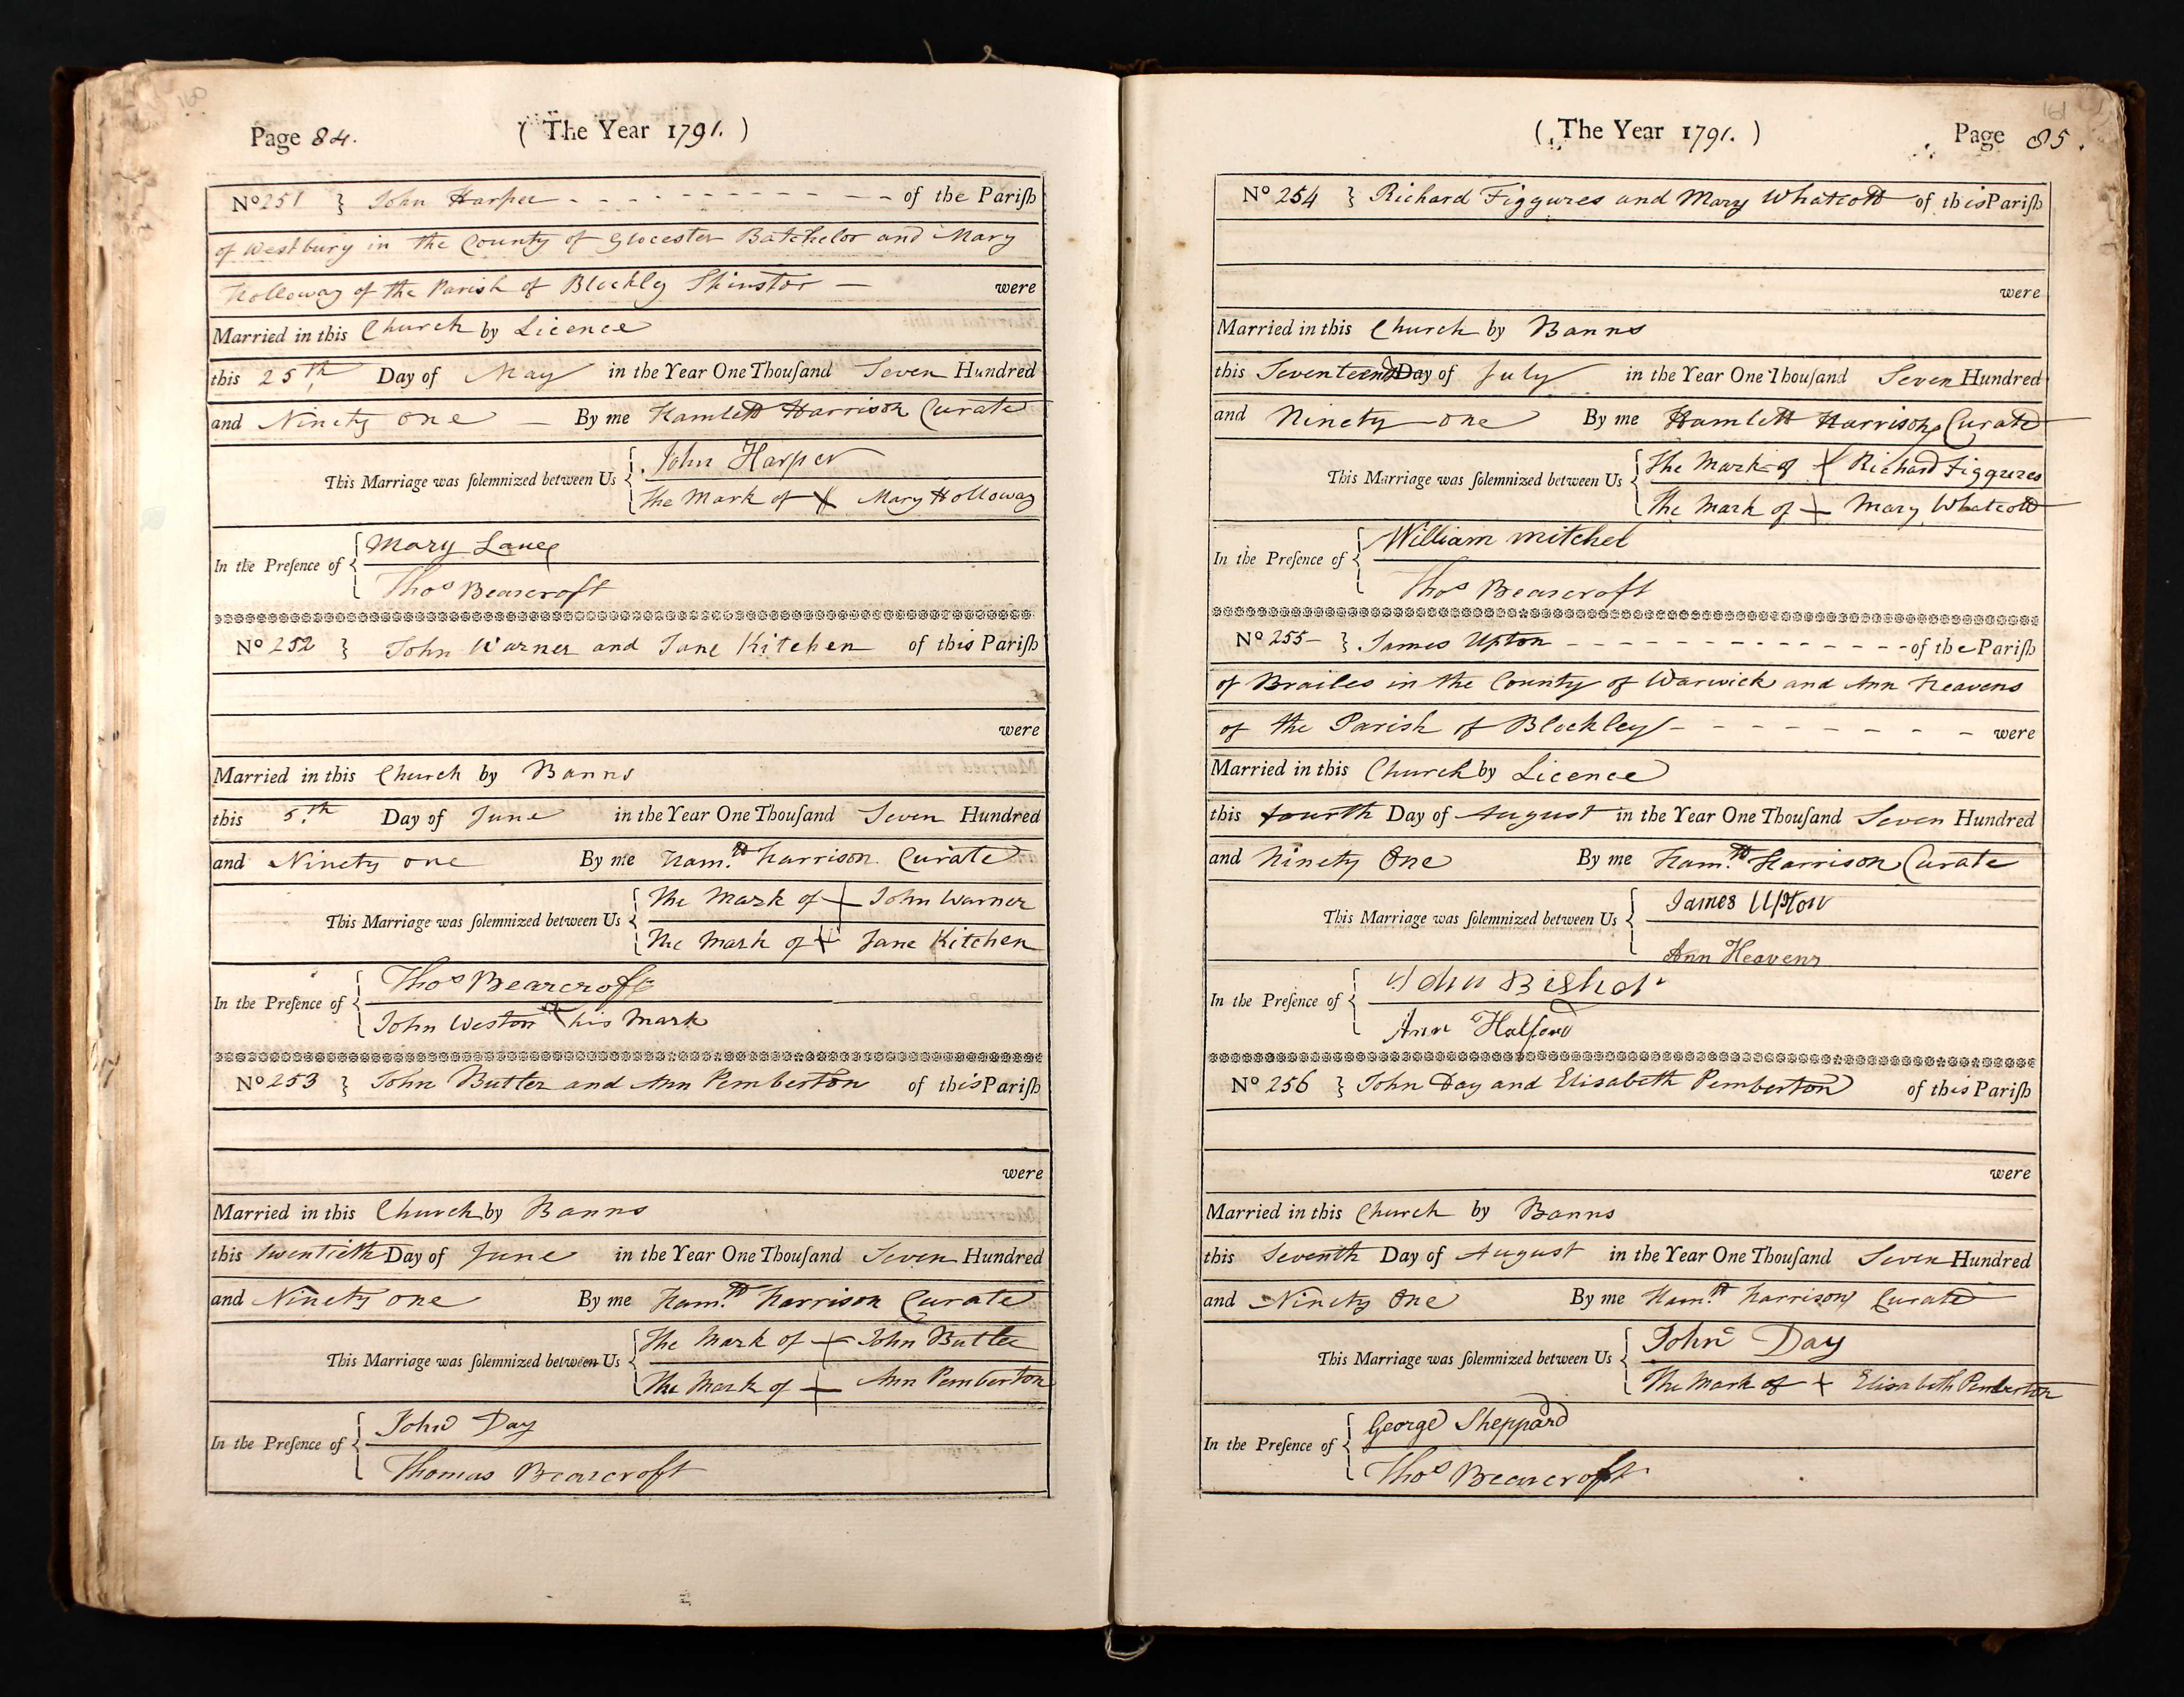 160
Page 84.
( The Year 1791. )
No 251 } John Harper - - - - - - - - - - of the Pariſh
of Westbury in the County of Glocester Batchelor and Mary
Holloway of the Parish of Blockly Spinster — were
Married in this Church by Licence
this 25th Day of May in the Year One Thouſand Seven Hundred
and Ninety one — By me Hamlett Harrison Curate
This Marriage was ſolemnized between Us { John Harper
The Mark of X Mary Holloway
In the Preſence of { Mary Lane
Thos Bearcroft
No 252 } John Warner and Jane Kitchen of this Pariſh
were
Married in this Church by Banns
this 5th Day of June in the Year One Thouſand Seven Hundred
and Ninety one By me Ham.tt Harrison Curate
This Marriage was ſolemnized between Us { The Mark of + John Warner
The Mark of + Jane Kitchen
In the Preſence of { Thos Bearcroft
John Weston X his Mark
No 253 } John Butler and Ann Pemberton of this Pariſh
were
Married in this Church by Banns
this twentieth Day of June in the Year One Thouſand Seven Hundred
and Ninety one By me Ham.tt Harrison Curate
This Marriage was ſolemnized between Us { The Mark of + John Butler
The Mark of + Ann Pemberton
In the Preſence of { John Day
Thomas Bearcroft
161
( The Year 1791. )
Page 85.
No 254 } Richard Figgures and Mary Whatcott of this Pariſh
were
Married in this Church by Banns
this Seventeenth Day of July in the Year One Thouſand Seven Hundred
and Ninety one By me Hamlett Harrison Curate
This Marriage was ſolemnized between Us { The Mark of + Richard Figgures
The Mark of + Mary Whatcott
In the Preſence of { William Mitchel
Thos Bearcroft
No 255 } James Upton - - - - - - - - - - - - of the Pariſh
of Brailes in the County of Warwick and Ann Heavens
of the Parish of Blockley - - - - - - - - were
Married in this Church by Licence
this fourth Day of August in the Year One Thouſand Seven Hundred
and Ninety One By me Ham.tt Harrison Curate
This Marriage was ſolemnized between Us { James Upton
Ann Heavens
In the Preſence of { John Bishop
Ann Halford
No 256 } John Day and Elisabeth Pemberton of this Pariſh
were
Married in this Church by Banns
this Seventh Day of August in the Year One Thouſand Seven Hundred
and Ninety One By me Ham.tt Harrison Curate
This Marriage was ſolemnized between Us { John Day
The Mark of + Elisabeth Pemberton
In the Preſence of { George Sheppard
Thos Bearcroft